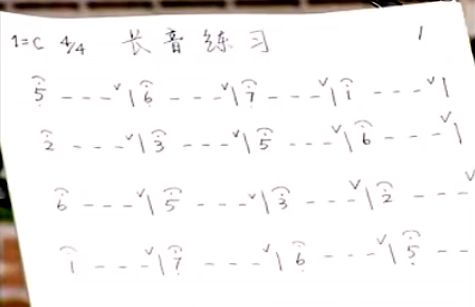 1=C 4/4 长音练习 1
5 - - - ∨ | 6 - - - ∨ | 7 - - - ∨ | i - - - ∨ |
2 - - - ∨ | 3 - - - ∨ | 5 - - - ∨ | 6 - - - ∨ |
6 - - - ∨ | 5 - - - ∨ | 3 - - - ∨ | 2 - - - ∨
i - - - ∨ | 7 - - - ∨ | 6 - - - ∨ | 5 - -